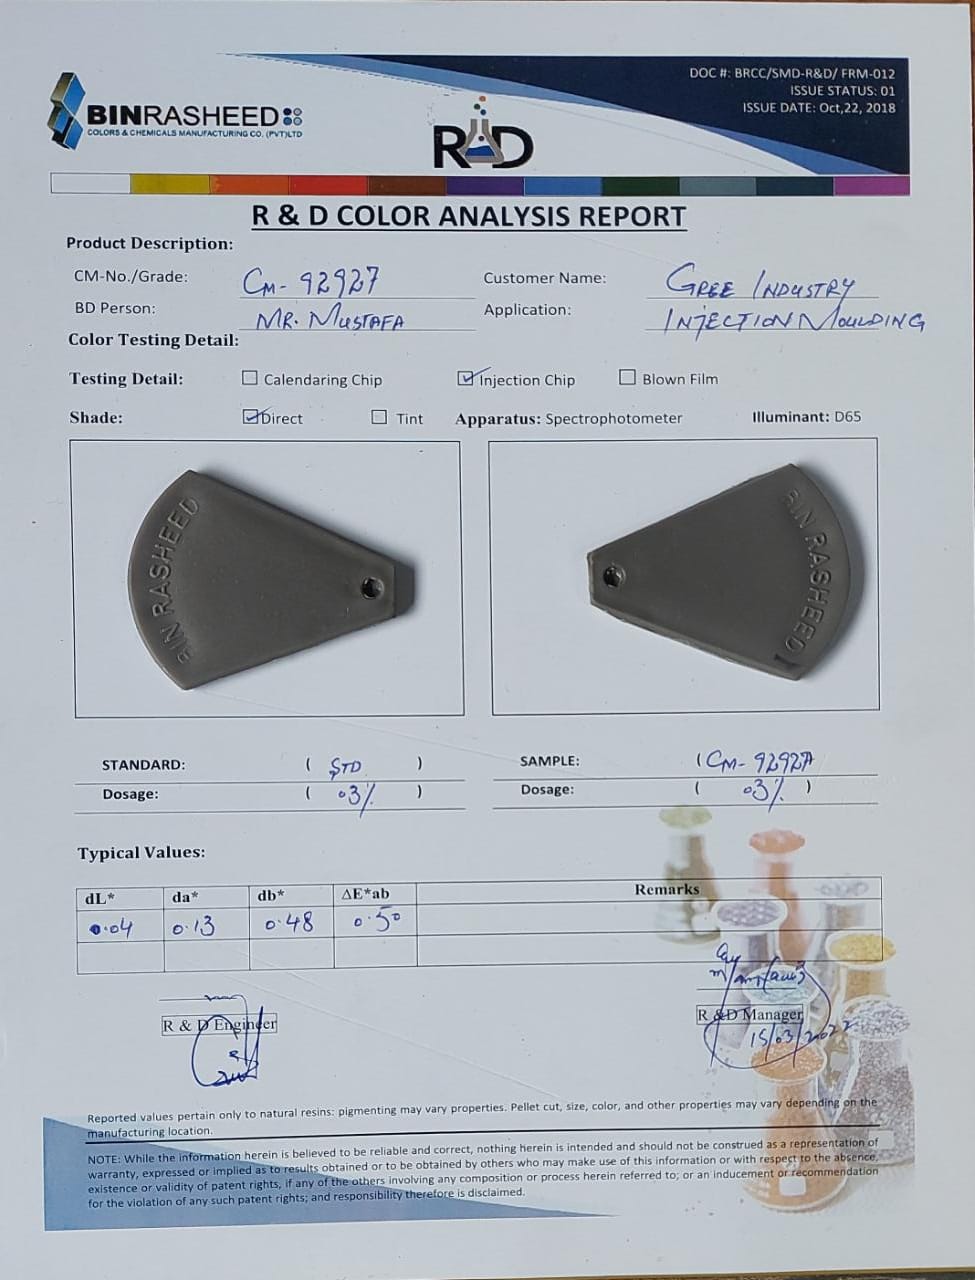 BINRASHEED
COLORS & CHEMICALS MANUFACTURING CO. (PVT)LTD
DOC #: BRCC/SMD-R&D/ FRM-012
ISSUE STATUS: 01
ISSUE DATE: Oct,22, 2018
R&D
R & D COLOR ANALYSIS REPORT
Product Description:
CM-No./Grade: CM-92927 Customer Name: GREE INDUSTRY
BD Person: MR. MUSTAFA Application: INJECTION MOULDING
Color Testing Detail:
Testing Detail: Calendaring Chip Injection Chip Blown Film
Shade: Direct Tint Apparatus: Spectrophotometer Illuminant: D65
BIN RASHEED BIN RASHEED
STANDARD: ( STD ) SAMPLE: (CM-92927A
Dosage: ( .03% ) Dosage: ( .03% )
Typical Values:
dL* da* db* ΔE*ab Remarks
0.04 0.13 0.48 0.50
R & D Engineer R &D Manager
15/03/2022
Reported values pertain only to natural resins: pigmenting may vary properties. Pellet cut, size, color, and other properties may vary depending on the
manufacturing location.
NOTE: While the information herein is believed to be reliable and correct, nothing herein is intended and should not be construed as a representation of
warranty, expressed or implied as to results obtained or to be obtained by others who may make use of this information or with respect to the absence,
existence or validity of patent rights, if any of the others involving any composition or process herein referred to; or an inducement or recommendation
for the violation of any such patent rights; and responsibility therefore is disclaimed.